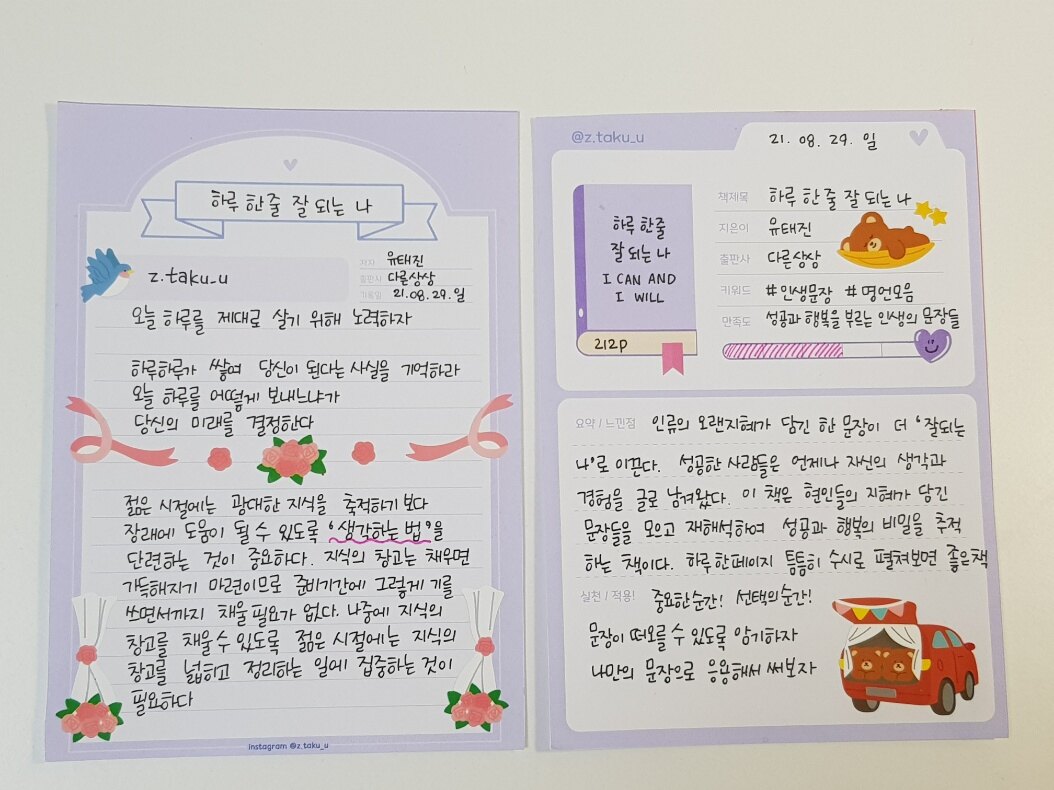 하루 한 줄 잘 되는 나
z.taku_u
저자 유태진
출판사 다른상상
기록일 21.08.29.일
오늘 하루를 제대로 살기 위해 노력하자
하루하루가 쌓여 당신이 된다는 사실을 기억하라
오늘 하루를 어떻게 보내느냐가
당신의 미래를 결정한다
젊은 시절에는 광대한 지식을 축적하기 보다
장래에 도움이 될 수 있도록 '생각하는 법'을
단련하는 것이 중요하다. 지식의 창고는 채우면
가득해지기 마련이므로 준비기간에 그렇게 기를
쓰면서까지 채울 필요가 없다. 나중에 지식의
창고를 채울 수 있도록 젊은 시절에는 지식의
창고를 넓히고 정리하는 일에 집중하는 것이
필요하다
instagram @z.taku_u
@z.taku_u
21. 08. 29. 일
하루 한줄
잘 되는 나
I CAN AND
I WILL
212p
책제목 하루 한 줄 잘 되는 나
지은이 유태진
출판사 다른상상
키워드 #인생문장 #명언모음
만족도 성공과 행복을 부르는 인생의 문장들
요약 / 느낀점 인류의 오랜지혜가 담긴 한 문장이 더 '잘되는
나'로 이끈다. 성공한 사람들은 언제나 자신의 생각과
경험을 글로 남겨왔다. 이 책은 현인들의 지혜가 담긴
문장들을 모으고 재해석하여 성공과 행복의 비밀을 추적
하는 책이다. 하루 한페이지 틈틈히 수시로 펼쳐보면 좋은책
실천 / 적용! 중요한순간! 선택의순간!
문장이 떠오를 수 있도록 암기하자
나만의 문장으로 응용해서 써보자